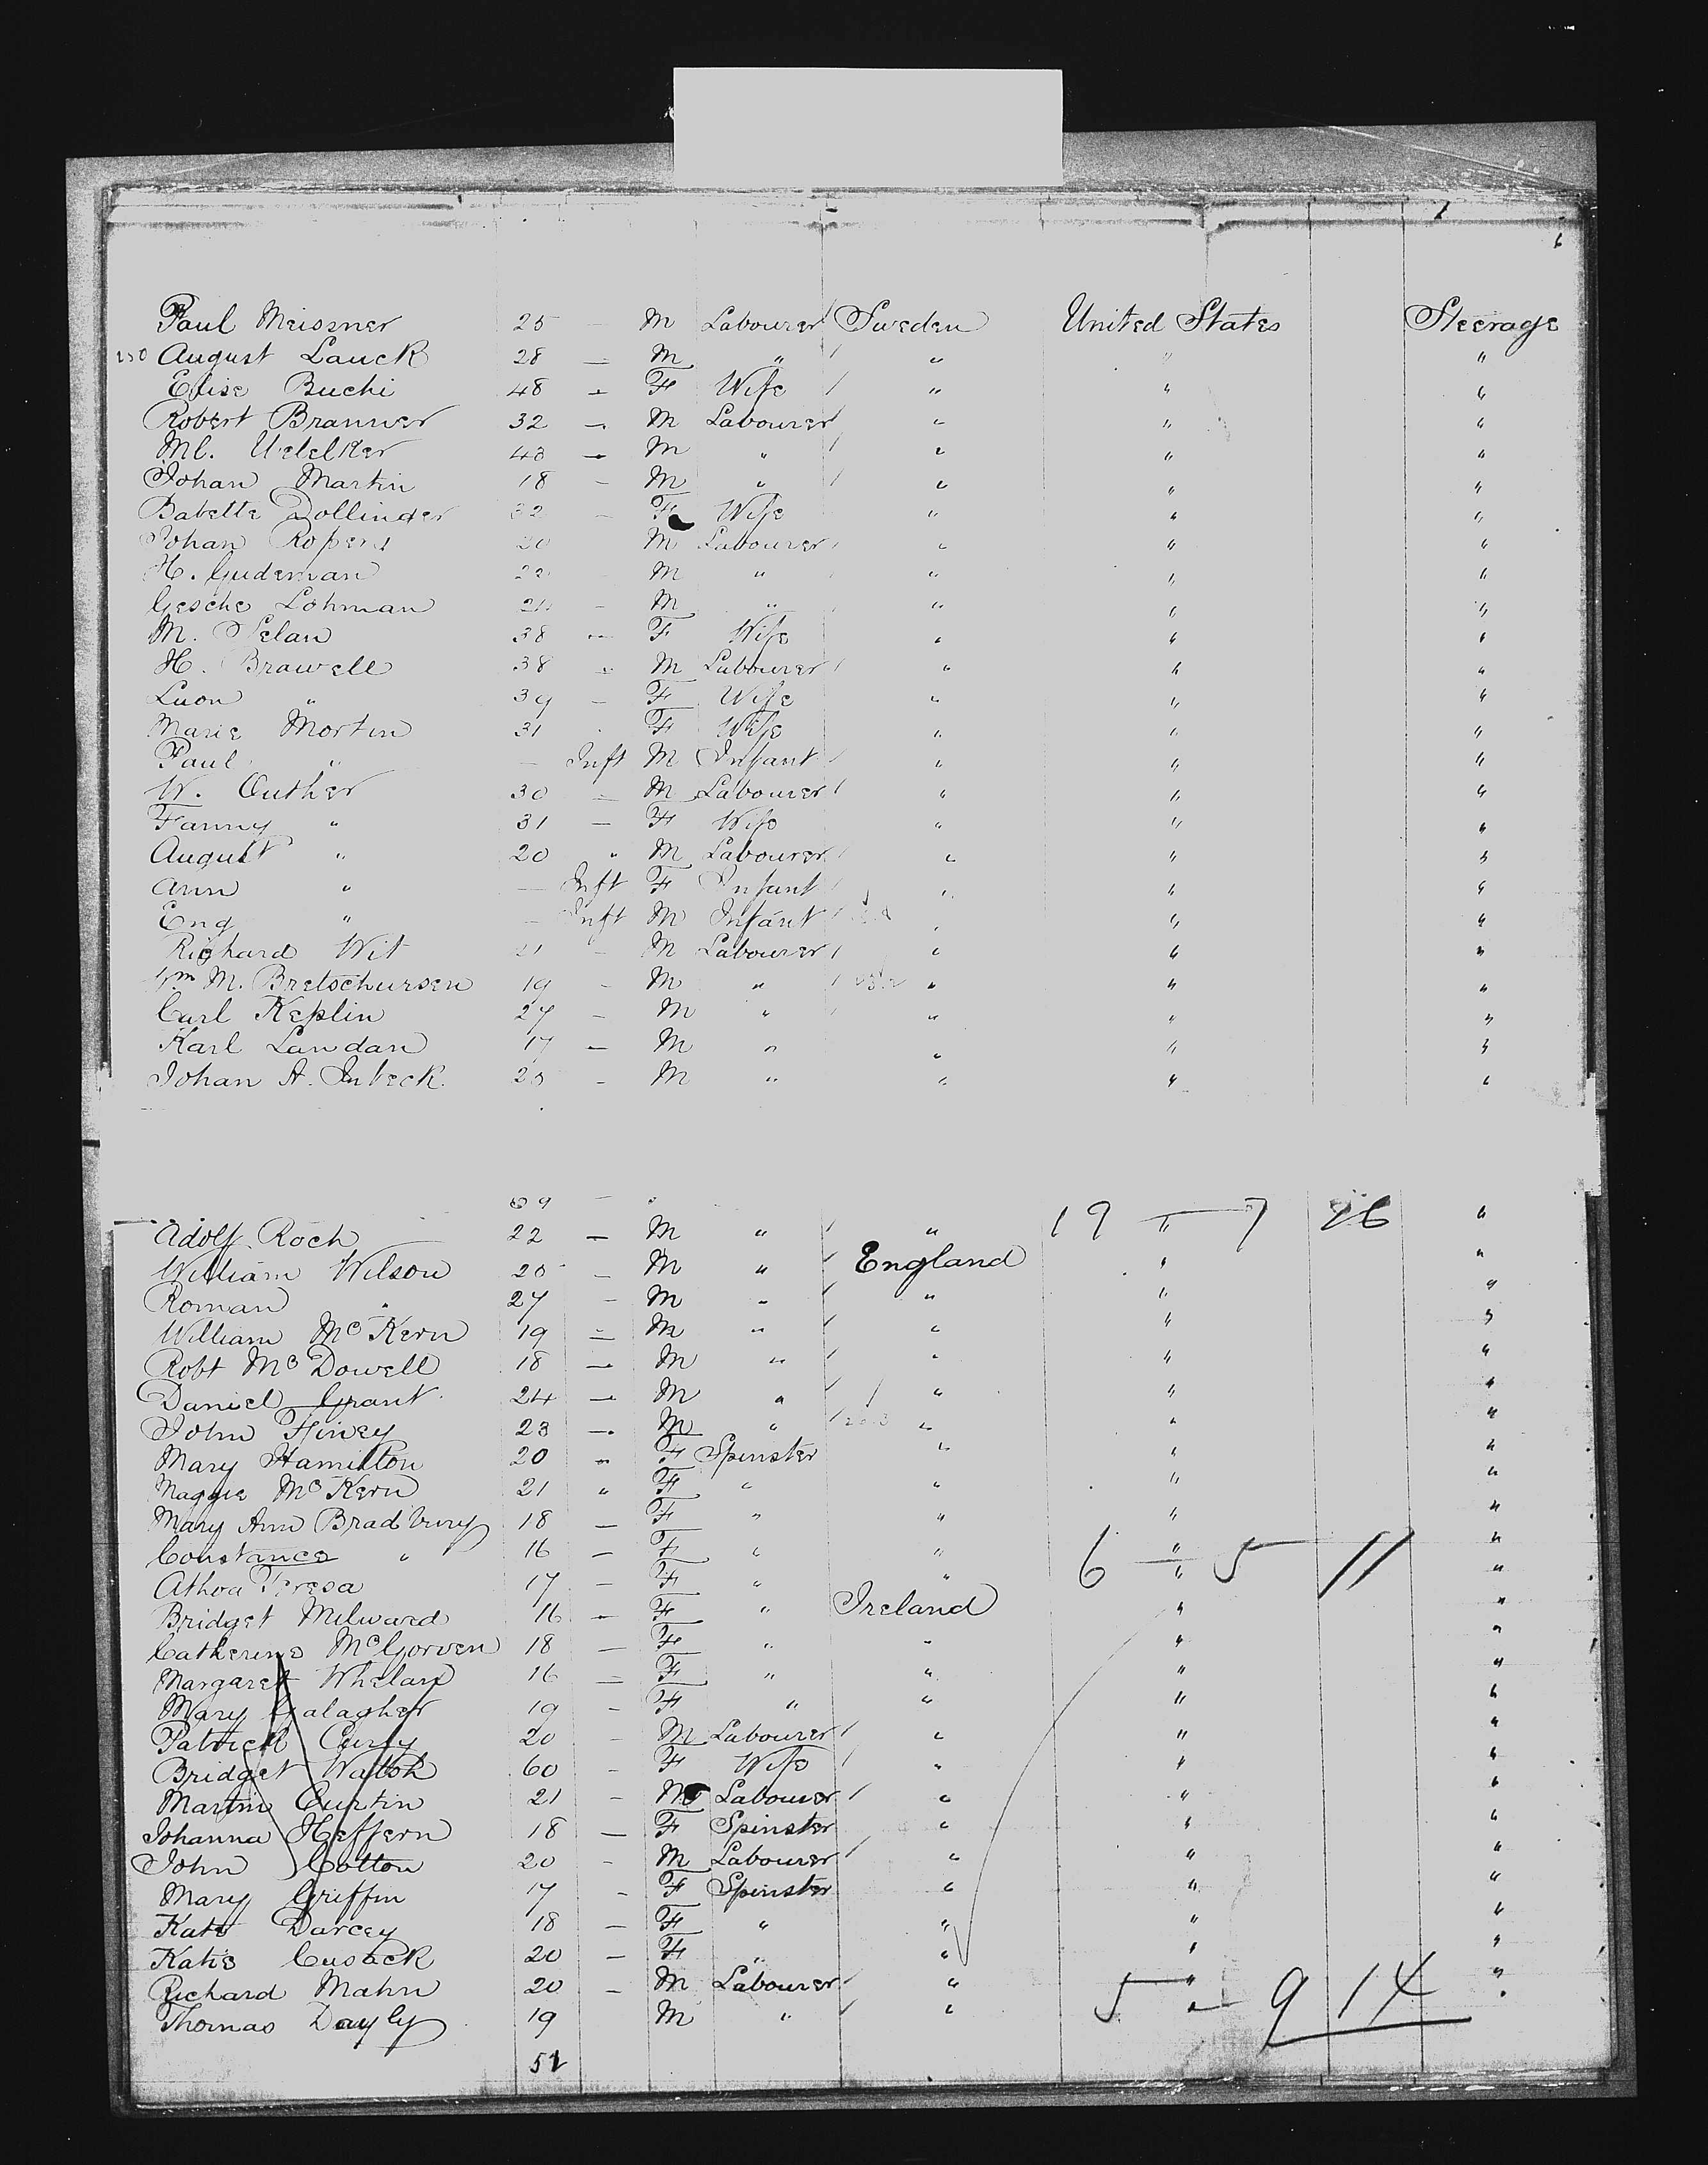 6
Paul Meissner 25 - M Labourer Sweden United States Steerage
150 August Lauck 28 - M " " " "
Elise Buchi 48 - F Wife " " "
Robert Branner 32 - M Labourer " " "
Ml. Uelelker 43 - M " " " "
Johan Martin 18 - M " " " "
Babette Dollinder 32 - F Wife " " "
Johan Ropers 20 M Labourer " " "
H. Gudeman 22 - M " " " "
Gesche Lohman 21 - M " " " "
M. Selan 38 - F Wife " " "
H. Brawell 38 - M Labourer " " "
Luon " 39 - F Wife " " "
Marie Mortin 31 F Wife " " "
Paul " - Inft M Infant " " "
W. Outher 30 - M Labourer " " "
Fanny " 31 - F Wife " " "
August " 20 " M Labourer " " "
Ann " - Inft F Infant " " "
Eng " - Inft M Infant " " "
Richard Wit 21 - M Labourer " " "
Wm M. Bretschursen 19 - M " " " "
Carl Keplin 27 - M " " " "
Karl Landan 17 - M " " " "
Johan A. Inbeck 25 - M " " " "
19 - 7 26 "
Adolf Roch 22 - M " "
William Wilson 20 - M " England " "
Roman " 27 - M " " " "
William McKern 19 - M " " " "
Robt McDowell 18 - M " " " "
Daniel Grant 24 - M " " " "
John Finey 23 - M " " " "
Mary Hamilton 20 " F Spinster " " "
Maggie McKern 21 " F " " " "
Mary Ann Bradbury 18 - F " " " "
Constance " 16 - F " " 6 - " 5 11 "
Athoa Teresa 17 - F " " " "
Bridget Milward 16 - F " Ireland " "
Catherine McGorven 18 - F " " " "
Margaret Whelan 16 - F " " " "
Mary Galagher 19 - F " " " "
Patrick Curry 20 - M Labourer " " "
Bridget Walsh 60 - F Wife " " "
Martin Curtin 21 - M Labourer " " "
Johanna Heffern 18 - F Spinster " " "
John Cotton 20 - M Labourer " " "
Mary Griffin 17 - F Spinster " " "
Kate Darcey 18 - F " " " "
Katie Cusack 20 - F " " " "
Richard Mahn 20 - M Labourer " " "
Thomas Dayly 19 M " " 5 - " 9 14 "
51